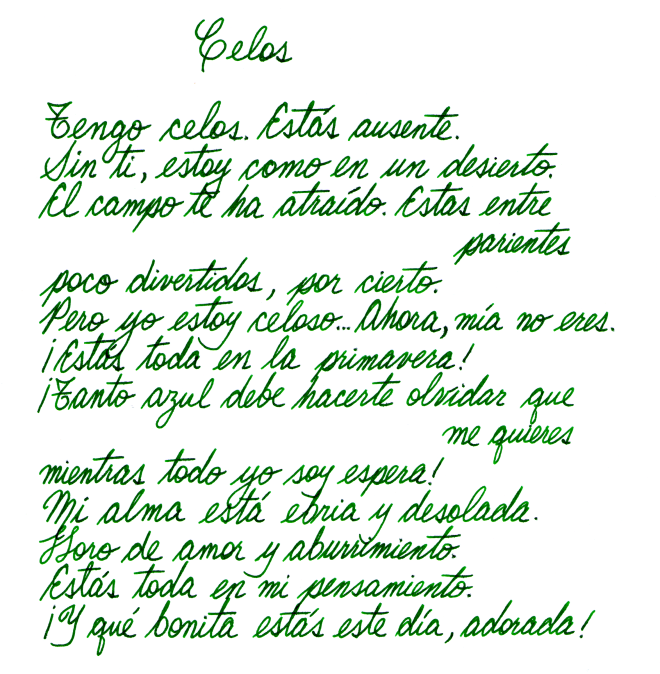 Celos
Tengo celos. Estás ausente.
Sin ti, estoy como en un desierto.
El campo te ha atraído. Estas entre
parientes
poco divertidos, por cierto.
Pero yo estoy celoso... Ahora, mía no eres.
¡Estás toda en la primavera!
¡Tanto azul debe hacerte olvidar que
me quieres
mientras todo yo soy espera!
Mi alma está ebria y desolada.
Lloro de amor y aburrimiento.
Estás toda en mi pensamiento.
¡Y qué bonita estás este día, adorada!